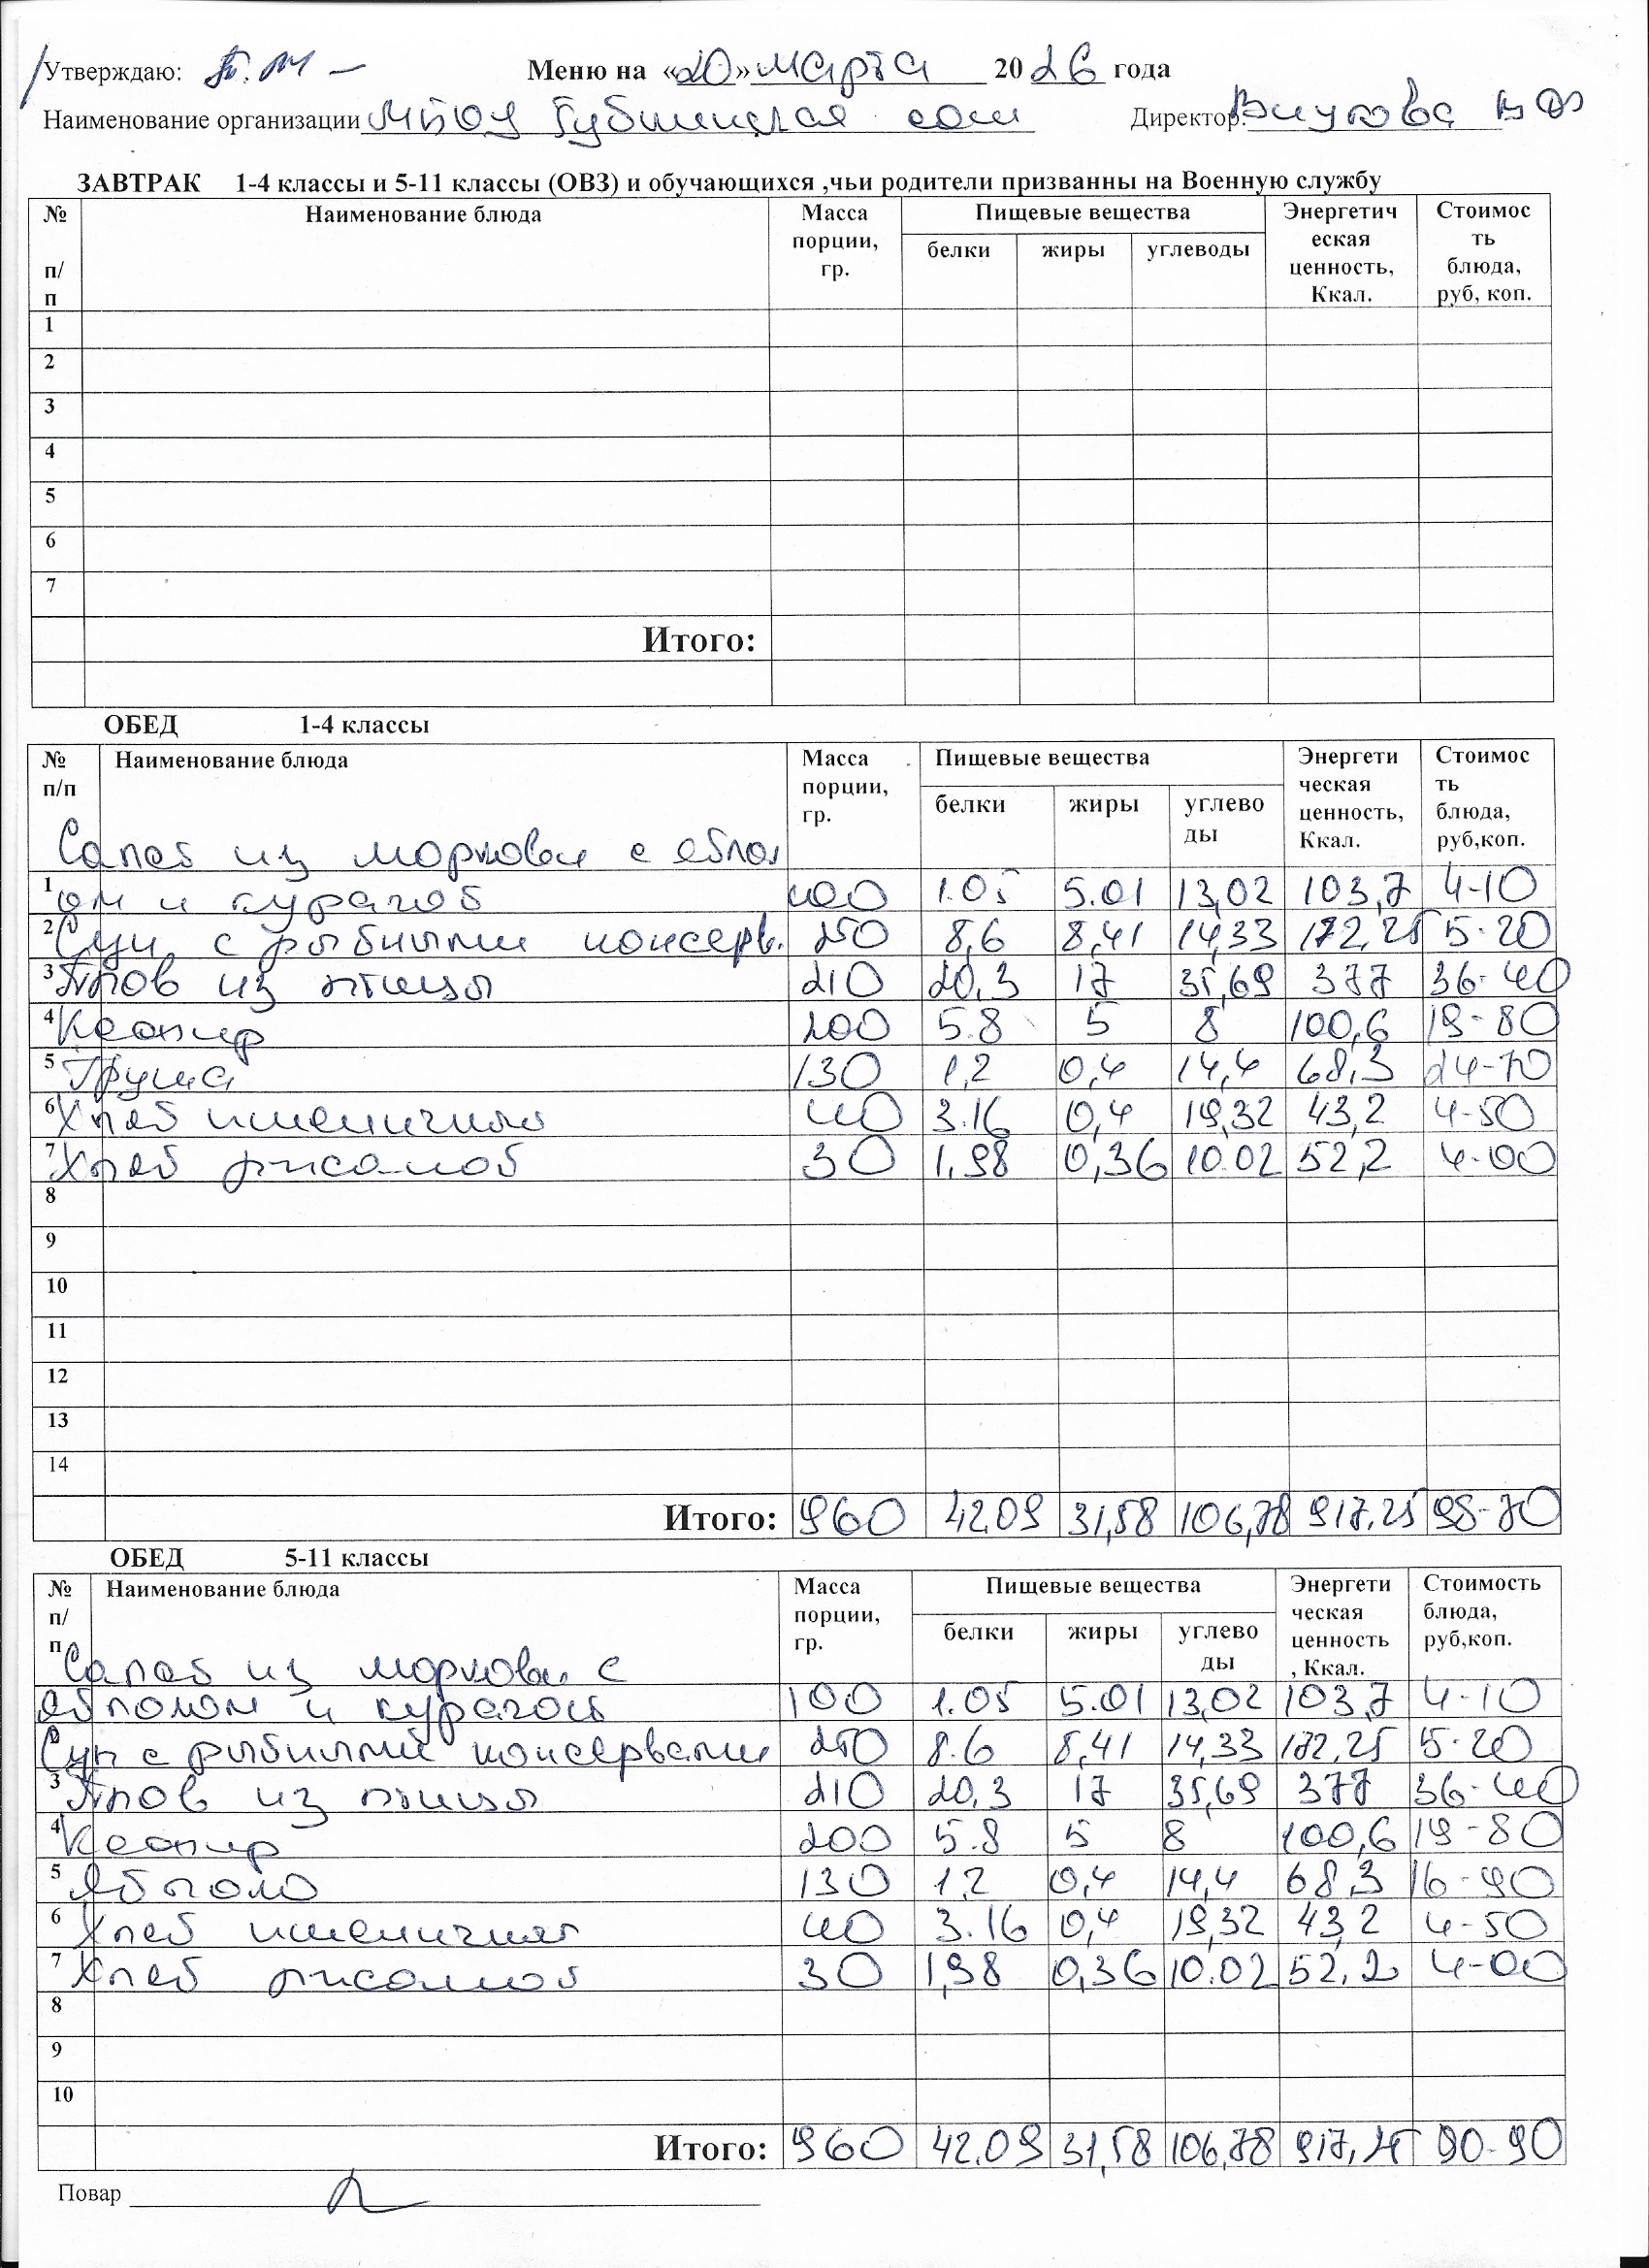 Утверждаю: Меню на «20» марта 2026 года
Наименование организации МБОУ Губинская сош Директор: Внукова
ЗАВТРАК 1-4 классы и 5-11 классы (ОВЗ) и обучающихся ,чьи родители призванны на Военную службу
№ п/п Наименование блюда Масса порции, гр. Пищевые вещества Энергетическая ценность, Ккал. Стоимость блюда, руб, коп.
белки жиры углеводы
1
2
3
4
5
6
7
Итого:
ОБЕД 1-4 классы
№ п/п Наименование блюда Масса порции, гр. Пищевые вещества Энергетическая ценность, Ккал. Стоимость блюда, руб,коп.
белки жиры углеводы
Салат из моркови с яблок
1 ом и курагой 100 1.05 5.01 13,02 103,7 4-10
2 Суп с рыбными консерв. 250 8,6 8,41 14,33 172,25 5-20
3 Плов из птицы 210 20,3 17 35,69 377 36-40
4 Кефир 200 5.8 5 8 100,6 19-80
5 Груша 130 1,2 0,4 14,4 68,3 24-70
6 Хлеб пшеничный 40 3.16 0,4 19,32 43,2 4-50
7 Хлеб ржаной 30 1,98 0,36 10.02 52,2 4-00
8
9
10
11
12
13
14
Итого: 960 42.09 31,58 106,78 917,25 98-70
ОБЕД 5-11 классы
№ п/п Наименование блюда Масса порции, гр. Пищевые вещества Энергетическая ценность, Ккал. Стоимость блюда, руб,коп.
белки жиры углеводы
Салат из моркови с
яблоком и курагой 100 1.05 5.01 13,02 103,7 4-10
2 Суп с рыбными консервами 250 8.6 8,41 14,33 172,25 5-20
3 Плов из птицы 210 20,3 17 35,69 377 36-40
4 Кефир 200 5.8 5 8 100,6 19-80
5 Яблоко 130 1,2 0,4 14,4 68,3 16-90
6 Хлеб пшеничный 40 3.16 0,4 19,32 43,2 4-50
7 Хлеб ржаной 30 1,98 0,36 10.02 52,2 4-00
8
9
10
Итого: 960 42.09 31,58 106,78 917,25 90-90
Повар